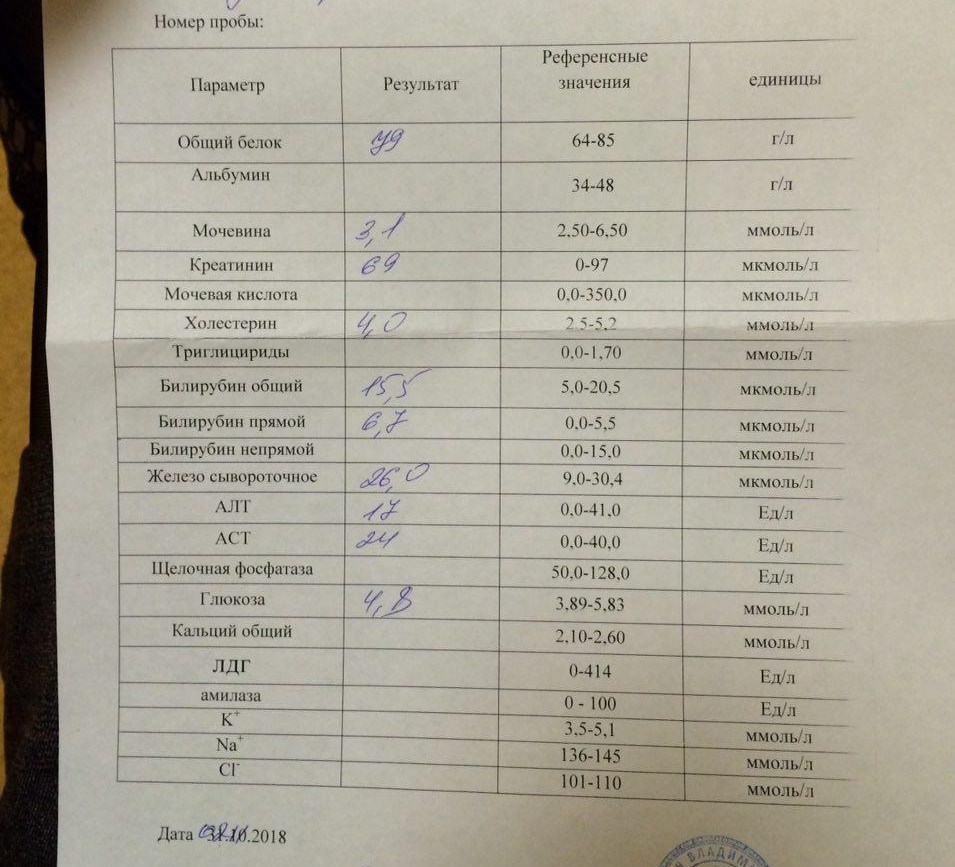 Номер пробы:
Параметр Результат Референсные значения единицы
Общий белок 79 64-85 г/л
Альбумин 34-48 г/л
Мочевина 3,1 2,50-6,50 ммоль/л
Креатинин 69 0-97 мкмоль/л
Мочевая кислота 0,0-350,0 мкмоль/л
Холестерин 4,0 2,5-5,2 ммоль/л
Триглицириды 0,0-1,70 ммоль/л
Билирубин общий 15,5 5,0-20,5 мкмоль/л
Билирубин прямой 6,7 0,0-5,5 мкмоль/л
Билирубин непрямой 0,0-15,0 мкмоль/л
Железо сывороточное 26,0 9,0-30,4 мкмоль/л
АЛТ 17 0,0-41,0 Ед/л
АСТ 24 0,0-40,0 Ед/л
Щелочная фосфатаза 50,0-128,0 Ед/л
Глюкоза 4,8 3,89-5,83 ммоль/л
Кальций общий 2,10-2,60 ммоль/л
ЛДГ 0-414 Ед/л
амилаза 0 - 100 Ед/л
K+ 3,5-5,1 ммоль/л
Na+ 136-145 ммоль/л
Cl- 101-110 ммоль/л
Дата 31.10.2018